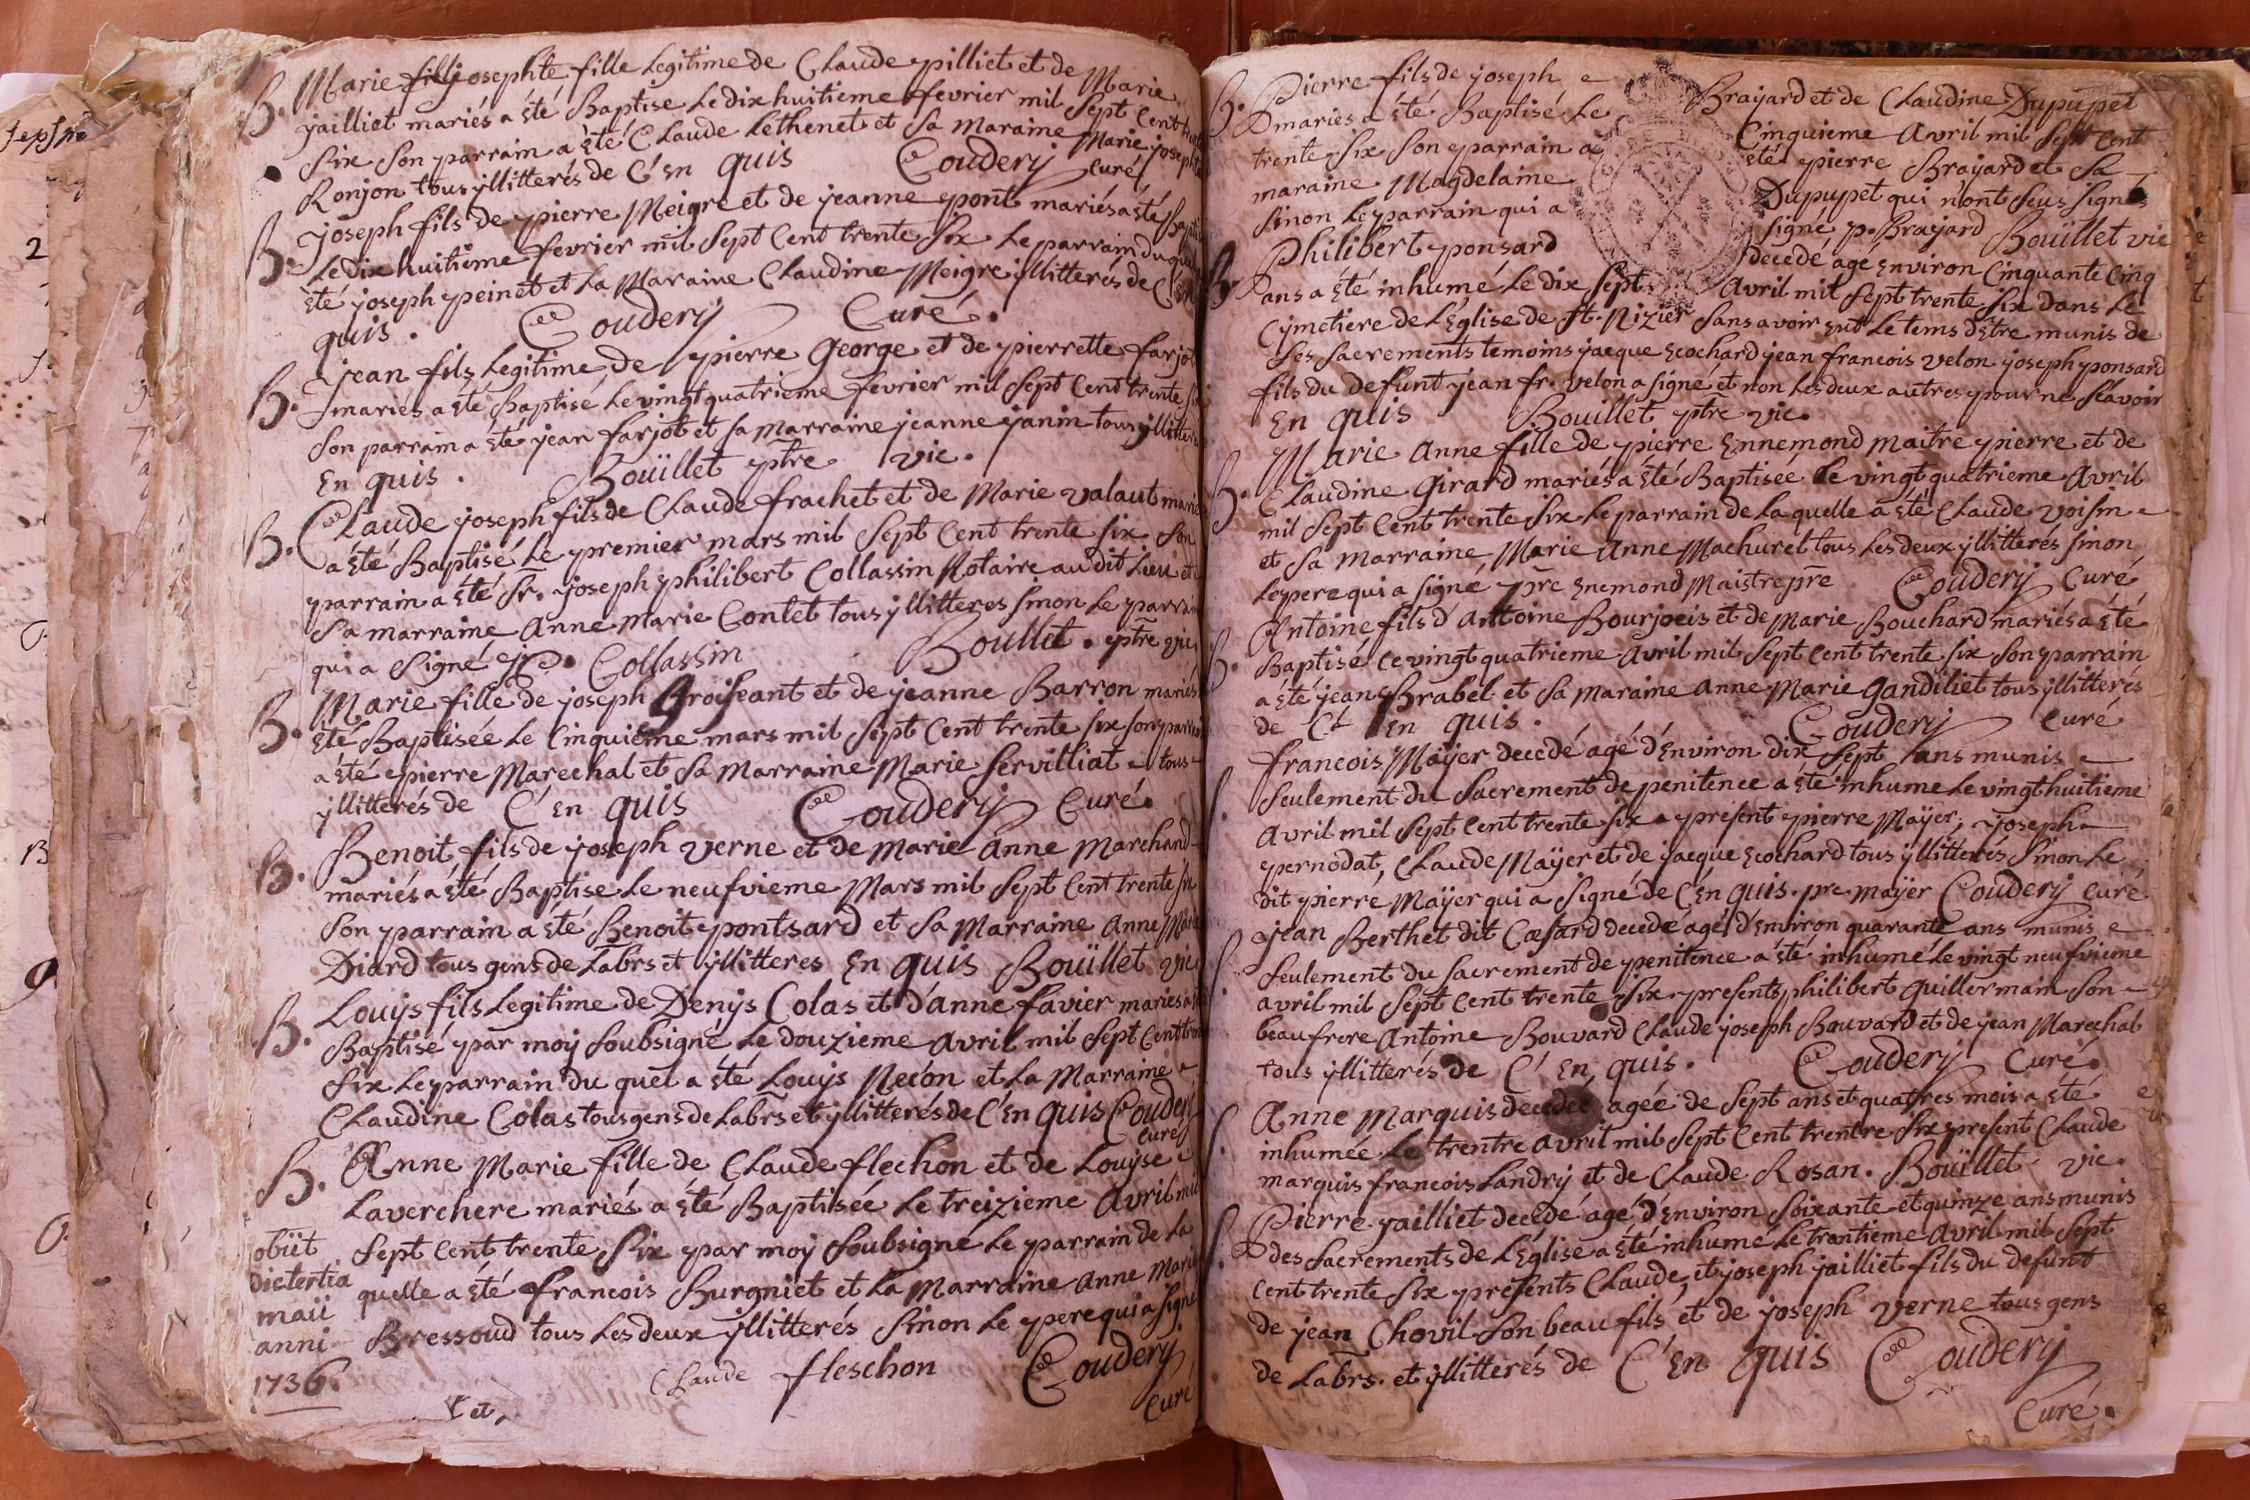 B. Marie fillj josephte fille legitime de Claude pilliet et de Marie
jailliet mariés a été Baptise le dix huitieme fevrier mil sept cent
six son parrain a été Claude Lethenet et sa Maraine Marie
Ronjon tous yllitterés de C'en quis Couderij curé
B. Joseph fils de pierre Meigre et de jeanne pont mariés a été
Le dix huitieme fevrier mil sept cent trente six le parrain
été joseph peinet et la Maraine Claudine Meigre yllitterés de
quis. Couderij Curé.
B. Jean fils legitime de pierre George et de pierrette farjot
mariés a été Baptisé le vingt quatrieme fevrier mil sept cent trente
son parrain a été jean farjot et sa marraine jeanne janin tous
En quis. Boüillet ptre vic.
B. Claude joseph fils de Claude frachet et de Marie valaut
a été Baptisé le premier mars mil sept cent trente six son
parrain a été sr. joseph philibert Collassin Notaire audit Lieu et
sa marraine Anne Marie Contet tous yllitteres sinon le
qui a signé Collassin Boullet. ptre vic
B. Marie fille de joseph Groiseant et de jeanne Barron mariés
été Baptisée le cinquieme mars mil sept cent trente six son
a été pierre Marechal et sa Marraine Marie Servilliat tous
yllitterés de C'en quis Couderij Curé.
B. Benoit fils de joseph verne et de Marie Anne Marchand
mariés a été Baptise le neufvieme Mars mil sept cent trente six
son parrain a été Benoit pontsard et sa Marraine Anne
Diard tous gens de Labrs et yllitteres En quis Boüillet vic
B. Louijs fils legitime de Denijs Colas et d'anne favier mariés
Baptisé par moij soubsigné le douzieme Avril mil sept cent
six le parrain du quel a été Louijs Necon et la Marraine
Claudine Colas tous gens de Labrs et yllitterés de C'en quis
Curé
B. Anne Marie fille de Claude flechon et de Louijse
Laverchere mariés a été Baptisée le treizieme Avril mil
sept cent trente six par moij soubsigné le parrain de la
quelle a été francois Burgniet et la Marraine Anne
Bressoud tous les deux yllitterés sinon le pere qui a signé
obiit
die tertia
maii
anni
1736.
Claude fleschon Couderij
Curé
B. Pierre fils de joseph Brajard et de Claudine Dupupet
mariés a été Baptisé le cinquieme Avril mil sept cent
trente six son parrain a été pierre Brajard et sa
maraine Magdelaine Dupupet qui n'ont seus signés
sinon le parrain qui a signé p. Brajard Boüillet vic
Philibert ponsard decedé age environ cinquante cinq
ans a été inhumé le dix sept Avril mil sept trente six dans le
cijmetiere de l'Eglise de st. Nizier sans avoir eut le tems d'être munis de
ses sacrements temoins jacque Ecochard jean francois velon joseph ponsard
fils du defunt jean fr. velon a signé et non les deux autres pour ne scavoir
En quis Bouillet ptre vic.
B. Marie Anne fille de pierre Ennemond Maitre pierre et de
Claudine Girard mariés a été Baptisée le vingt quatrieme Avril
mil sept cent trente six le parrain de laquelle a été Claude voisin
et sa Marraine Marie Anne Machuret tous les deux yllitterés sinon
le pere qui a signé pre Enemond Maistrepre Couderij Curé
B. Antoine fils d'Antoine Bourjoeis et de Marie Bouchard mariés a été
Baptisé le vingt quatrieme Avril mil sept cent trente six son parrain
a été jean Brabel et sa Maraine Anne Marie Gandiliet tous yllitterés
de C' En quis. Couderij Curé
francois Maijer decedé agé d'Environ dix sept ans munis
seulement du sacrement de penitence a été inhumé le vingt huitieme
Avril mil sept cent trente six present pierre Maÿer, joseph
pernodat, Claude Maÿer et de jacque Ecochard tous yllitterés sinon le
dit pierre Maÿer qui a signé de C'en quis. pre maÿer Couderij curé
Jean Berthet dit Cæsard decedé agé d'Environ quarante ans munis
seulement du sacrement de penitence a été inhumé le vingt neufvieme
avril mil sept cent trente six presents philibert Guillermain son
beau frere Antoine Bouvard Claude joseph Bouvard et de jean Marechal
tous yllitterés de C'en quis. Couderij Curé.
Anne Marquis decedée agée de sept ans et quatres mois a été
inhumée le trentre avril mil sept cent trentre six present Claude
marquis francois Landrij et de Claude Rosan. Boüillet vic.
Pierre jailliet decedé agé d'Environ soixante et quinze ans munis
des sacrements de l'Eglise a été inhumé le trantieme Avril mil sept
cent trente six presents Claude, et joseph jailliet fils du defunt
de jean Chovil son beau fils et de joseph verne tous gens
de Labrs. et yllitterés de C'En quis Couderij
Curé.